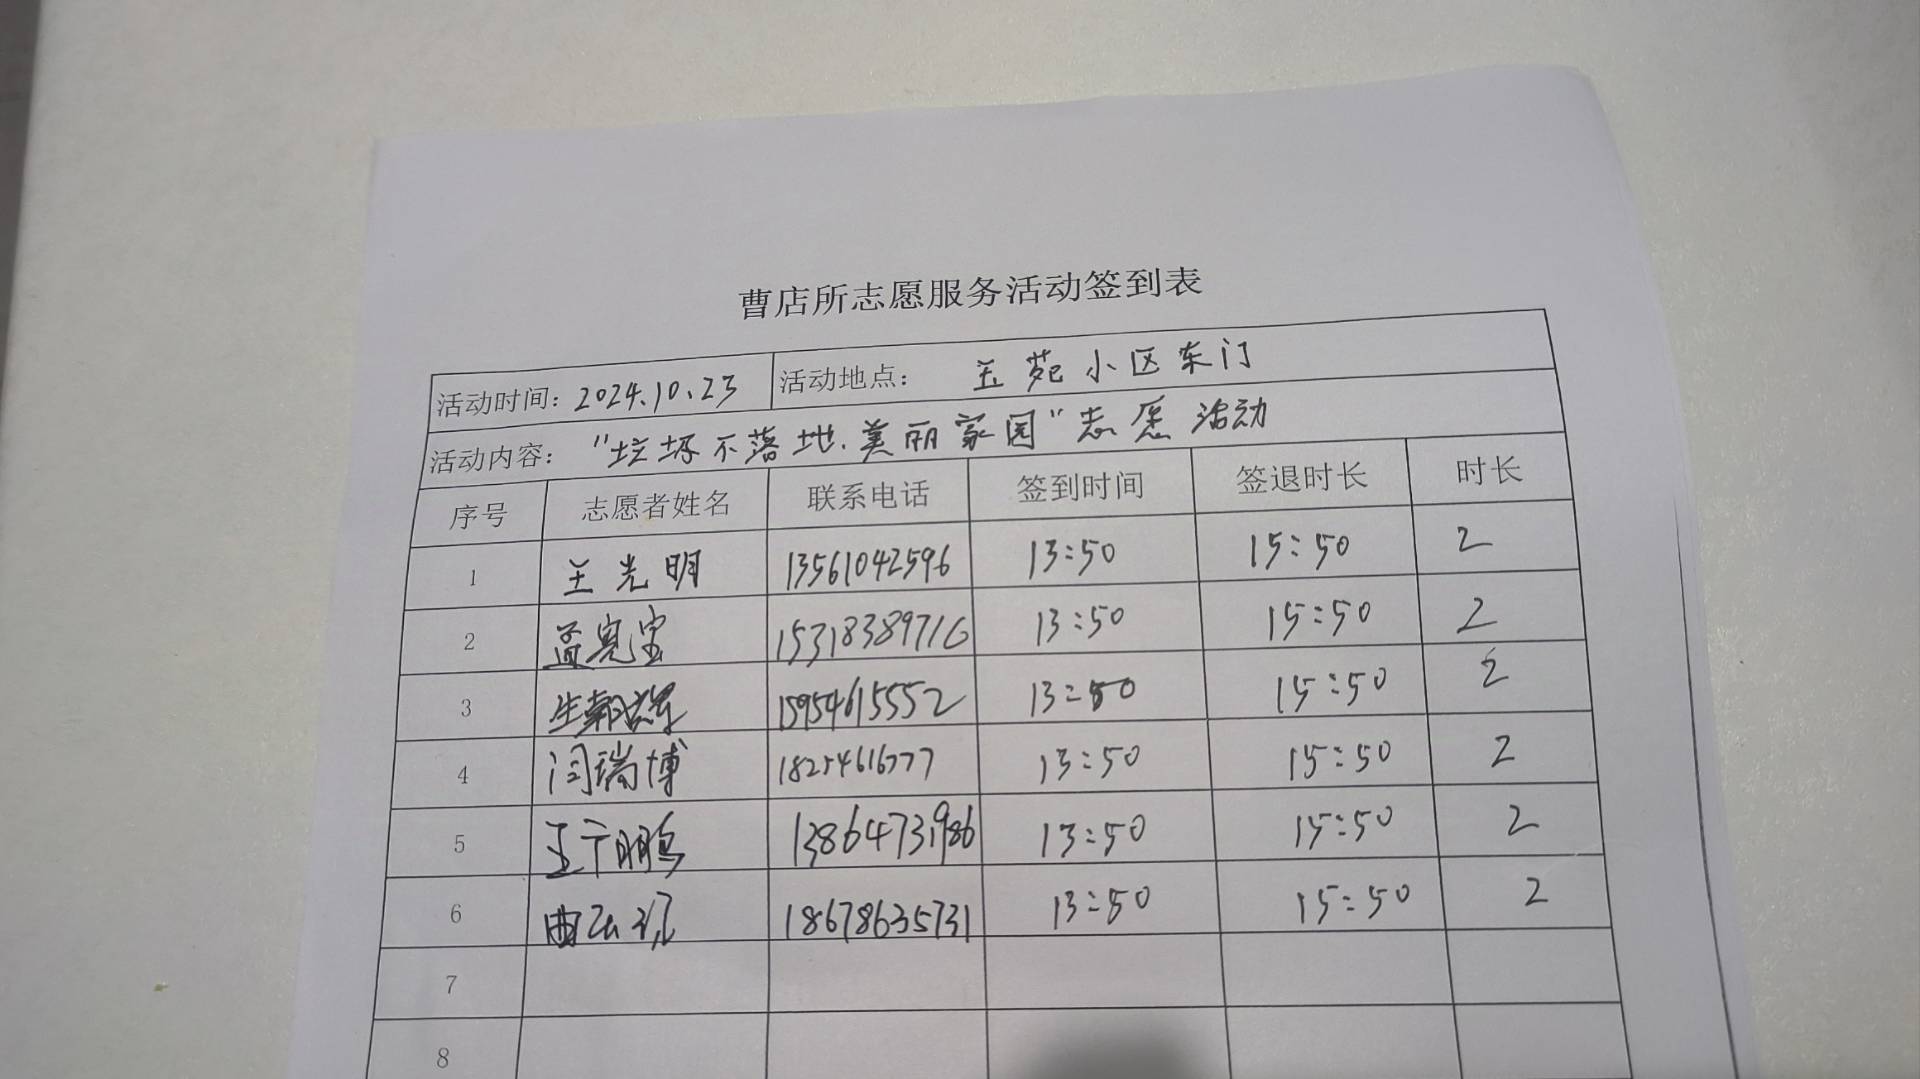 曹店所志愿服务活动签到表
活动时间：2024.10.23 活动地点： 玉苑小区东门
活动内容："垃圾不落地.美丽家园"志愿活动
序号 志愿者姓名 联系电话 签到时间 签退时长 时长
1 王光明 13561042596 13:50 15:50 2
2 孟宪宝 15318389716 13:50 15:50 2
3 15954615552 13:50 15:50 2
4 闫瑞博 18254616777 13:50 15:50 2
5 王宁鹏 13864731986 13:50 15:50 2
6 18678635731 13:50 15:50 2
7
8